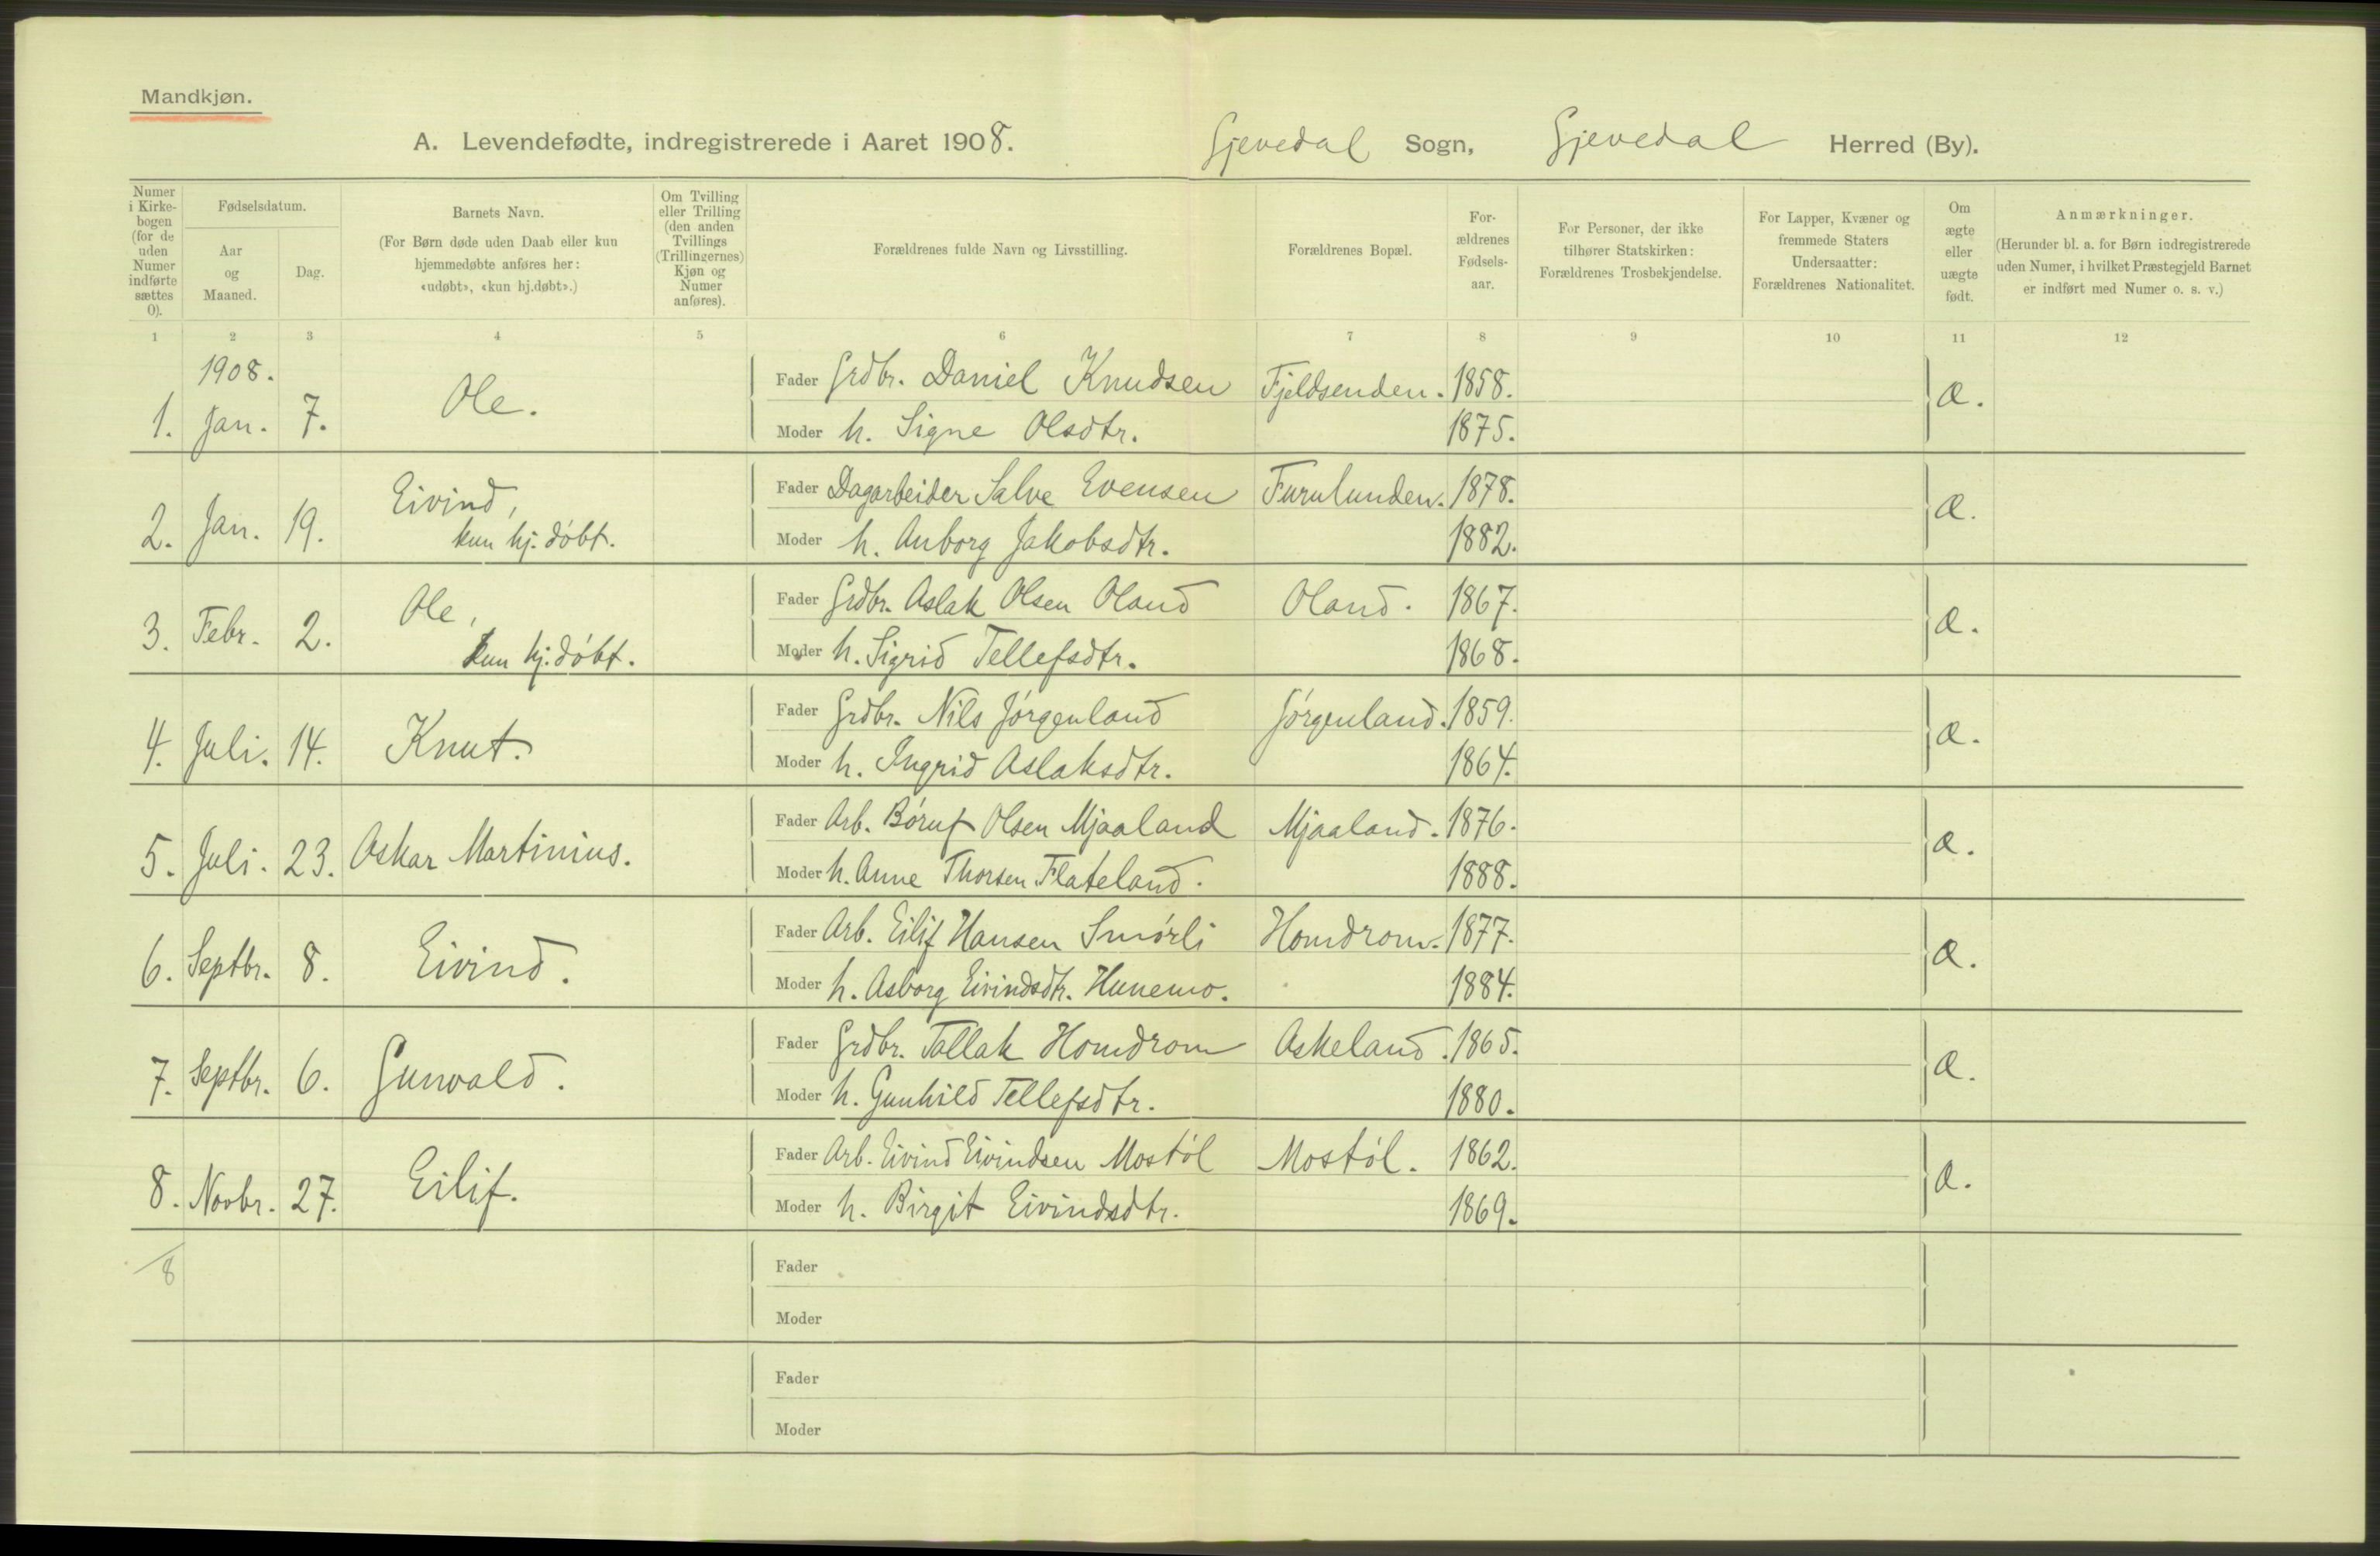 Mandkjøn.
A. Levendefødte, indregistrerede i Aaret 1908. Gjevedal Sogn, Gjevedal Herred (By).
Numer i Kirkebogen (for de uden Numer indførte sættes 0).
Fødselsdatum.
Aar og Maaned.
Dag.
Barnets Navn.
(For Børn døde uden Daab eller kun hjemmedøbte anføres her: «udøbt», «kun hj.døbt».)
Om Tvilling eller Trilling (den anden Tvillings (Trillingernes) Kjøn og Numer anføres).
Forældrenes fulde Navn og Livsstilling.
Forældrenes Bopæl.
Forældrenes Fødselsaar.
For Personer, der ikke tilhører Statskirken: Forældrenes Trosbekjendelse.
For Lapper, Kvæner og fremmede Staters Undersaatter: Forældrenes Nationalitet.
Om ægte eller uægte født.
Anmærkninger.
(Herunder bl. a. for Børn indregistrerede uden Numer, i hvilket Præstegjeld Barnet er indført med Numer o. s. v.)
1 2 3 4 5 6 7 8 9 10 11 12
1908.
1. Jan. 7. Ole. Fader Grdbr. Daniel Knudsen Fjeldsenden. 1858. æ.
Moder h. Signe Olsdtr. 1875.
2. Jan. 19. Eivind, kun hj. døbt. Fader Dagarbeider Salve Evensen Furulunden. 1878. æ.
Moder h. Anborg Jakobsdtr. 1882.
3. Febr. 2. Ole, kun hj. døbt. Fader Grdbr. Aslak Olsen Oland Oland. 1867. æ.
Moder h. Sigrid Tellefsdtr. 1868.
4. Juli. 14. Knut. Fader Grdbr. Nils Jørgenland Jørgenland. 1859. æ.
Moder h. Ingrid Aslaksdtr. 1864.
5. Juli. 23. Askar Martinius. Fader Arb. Børuf Olsen Mjaaland Mjaaland. 1876. æ.
Moder h. Anne Thorsen Flateland. 1888.
6. Septbr. 8. Eivind. Fader Arb. Eilif Hansen Smørli Homdrom. 1877. æ.
Moder h. Asborg Eivindsdtr. Hunemo. 1884.
7. Septbr. 6. Gunvald. Fader Grdbr. Tallak Homdrom Askeland. 1865. æ.
Moder h. Gunhild Tellefsdtr. 1880.
8. Novbr. 27. Eilif. Fader Arb. Eivind Eivindsen Mostøl Mostøl. 1862. æ.
Moder h. Birgit Eivindsdtr. 1869.
8 Fader
Moder
Fader
Moder